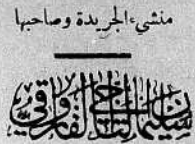 منشيء الجريدة وصاحبها
سليمان التاجي الفاروقي